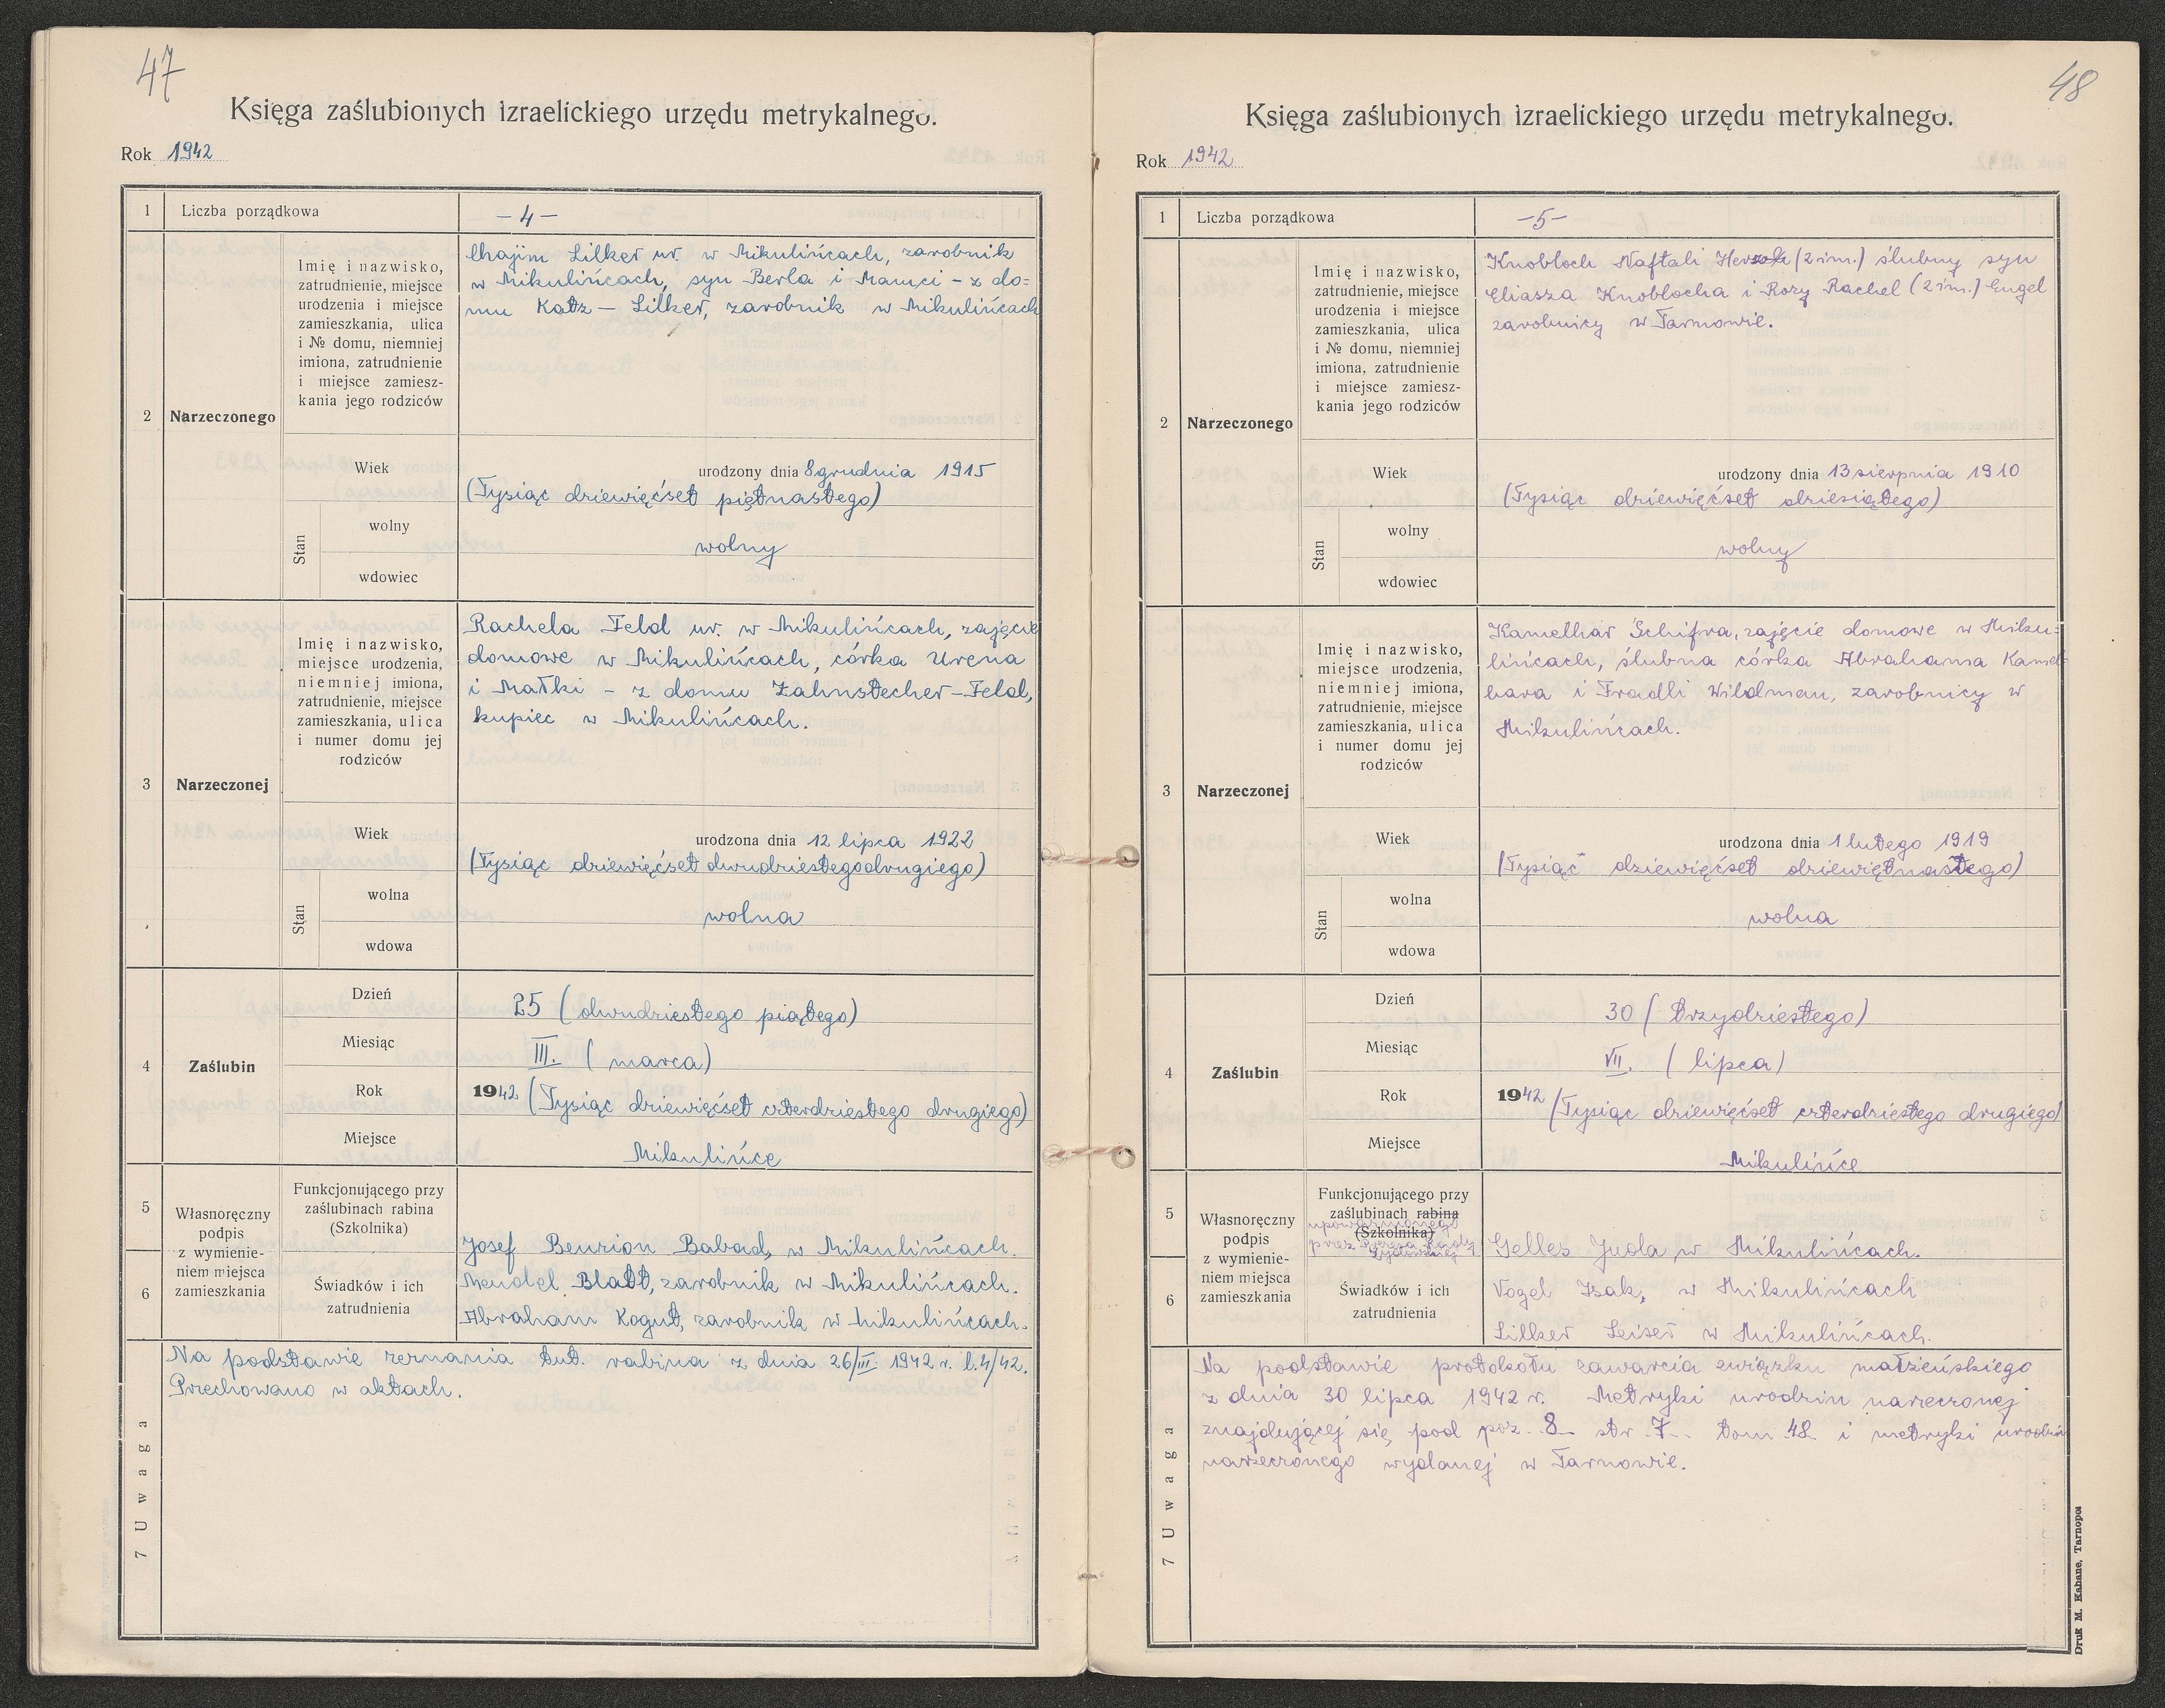 47
Księga zaślubionych izraelickiego urzędu metrykalnego.
Rok 1942
1 Liczba porządkowa -4-
2 Narzeczonego
Imię i nazwisko,
zatrudnienie, miejsce
urodzenia i miejsce
zamieszkania, ulica
i № domu, niemniej
imiona, zatrudnienie
i miejsce zamiesz-
kania jego rodziców
Chajim Silker ur. w Mikulińcach, zarobnik
w Mikulińcach, syn Berla i Mamci - z do=
mu Katz - Silker, zarobnik w Mikulińcach
Wiek urodzony dnia 8 grudnia 1915
(Tysiąc dziewięćset piętnastego)
Stan
wolny
wolny
wdowiec
3 Narzeczonej
Imię i nazwisko,
miejsce urodzenia,
niemniej imiona,
zatrudnienie, miejsce
zamieszkania, ulica
i numer domu jej
rodziców
Rachela Feld ur. w Mikulińcach, zajęcie
domowe w Mikulińcach, córka Urena
i Małki - z domu Zahnstecher-Feld,
kupiec w Mikulińcach.
Wiek urodzona dnia 12 lipca 1922
(Tysiąc dziewięćset dwudziestegodrugiego)
Stan
wolna
wolna
wdowa
4 Zaślubin
Dzień 25 (dwudziestego piątego)
Miesiąc III. (marca)
Rok 1942 (Tysiąc dziewięćset czterdziestego drugiego)
Miejsce Mikulińce
5
6
Własnoręczny
podpis
z wymienie-
niem miejsca
zamieszkania
Funkcjonującego przy
zaślubinach rabina
(Szkolnika)
Josef Benzion Babad, w Mikulińcach.
Świadków i ich
zatrudnienia
Mendel Blatt, zarobnik w Mikulińcach.
Abraham Kogut, zarobnik w Mikulińcach.
7 Uwaga
Na podstawie zeznania tut. rabina z dnia 26/III. 1942 r. l.4/42.
Przechowano w aktach.
48
Księga zaślubionych izraelickiego urzędu metrykalnego.
Rok 1942
1 Liczba porządkowa -5-
2 Narzeczonego
Imię i nazwisko,
zatrudnienie, miejsce
urodzenia i miejsce
zamieszkania, ulica
i № domu, niemniej
imiona, zatrudnienie
i miejsce zamiesz-
kania jego rodziców
Knobloch Naftali (2 im.) ślubny syn
Eliasza Knoblocha i Rozy Rachel (2 im.) Engel
zarobnicy w Tarnowie.
Wiek urodzony dnia 13 sierpnia 1910
(Tysiąc dziewięćset dziesiątego)
Stan
wolny
wolny
wdowiec
3 Narzeczonej
Imię i nazwisko,
miejsce urodzenia,
niemniej imiona,
zatrudnienie, miejsce
zamieszkania, ulica
i numer domu jej
rodziców
Kamelhar Schifra, zajęcie domowe w Miku=
lińcach, ślubna córka Abrahama Kamel=
hara i Fradli Wildman, zarobnicy w
Mikulińcach.
Wiek urodzona dnia 1 lutego 1919
(Tysiąc dziewięćset dziewiętnastego)
Stan
wolna
wolna
wdowa
4 Zaślubin
Dzień 30 (trzydziestego)
Miesiąc VII. (lipca)
Rok 1942 (Tysiąc dziewięćset czterdziestego drugiego)
Miejsce Mikulińce
5
6
Własnoręczny
podpis
z wymienie-
niem miejsca
zamieszkania
Funkcjonującego przy
zaślubinach rabina
upoważnionego
(Szkolnika)
przez Prezesa Rady
Żydowskiej
Gelles Juda w Mikulińcach.
Świadków i ich
zatrudnienia
Vogel Izak, w Mikulińcach
Silker Leiser w Mikulińcach.
7 Uwaga
Na podstawie protokołu zawarcia związku małżeńskiego
z dnia 30 lipca 1942 r. Metryki urodzin narzeczonej
znajdującej się pod poz. 8 str 7 tom 48 i metryki urodzin
narzeczonego wydanej w Tarnowie.
Druk M. Kahane, Tarnopol